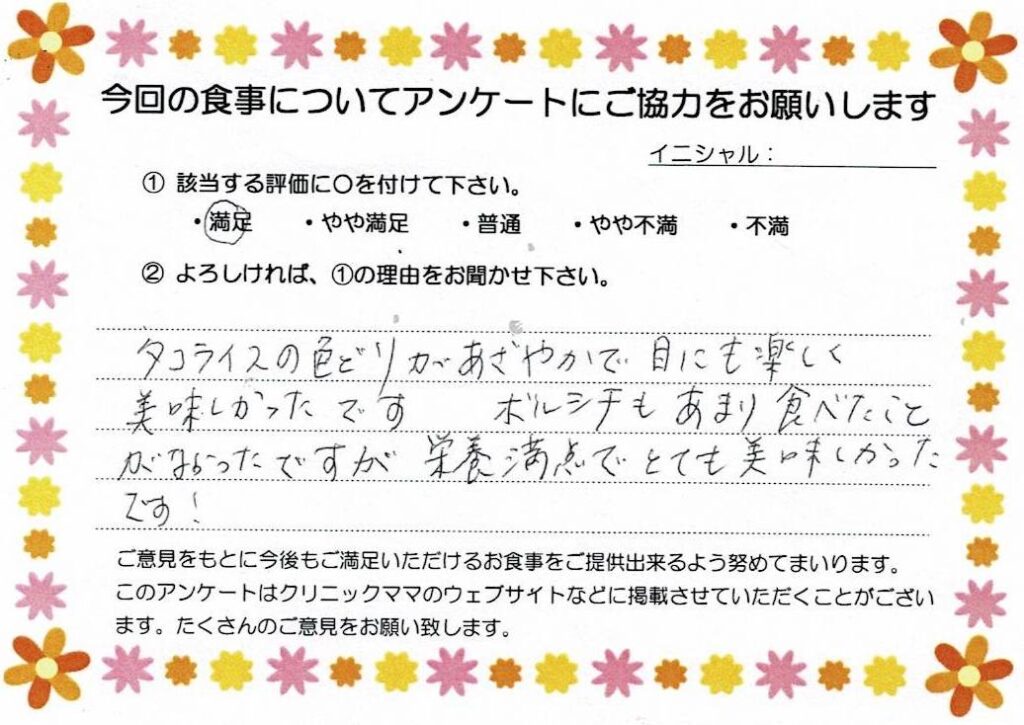 今回の食事についてアンケートにご協力をお願いします
イニシャル：
① 該当する評価に〇を付けて下さい。
・満足 ・やや満足 ・普通 ・やや不満 ・不満
② よろしければ、①の理由をお聞かせ下さい。
タコライスの色どりがあざやかで目にも楽しく
美味しかったです ボルシチもあまり食べたこと
がなかったですが 栄養満点でとても美味しかった
です！
ご意見をもとに今後もご満足いただけるお食事をご提供出来るよう努めてまいります。
このアンケートはクリニックママのウェブサイトなどに掲載させていただくことがござい
ます。たくさんのご意見をお願い致します。